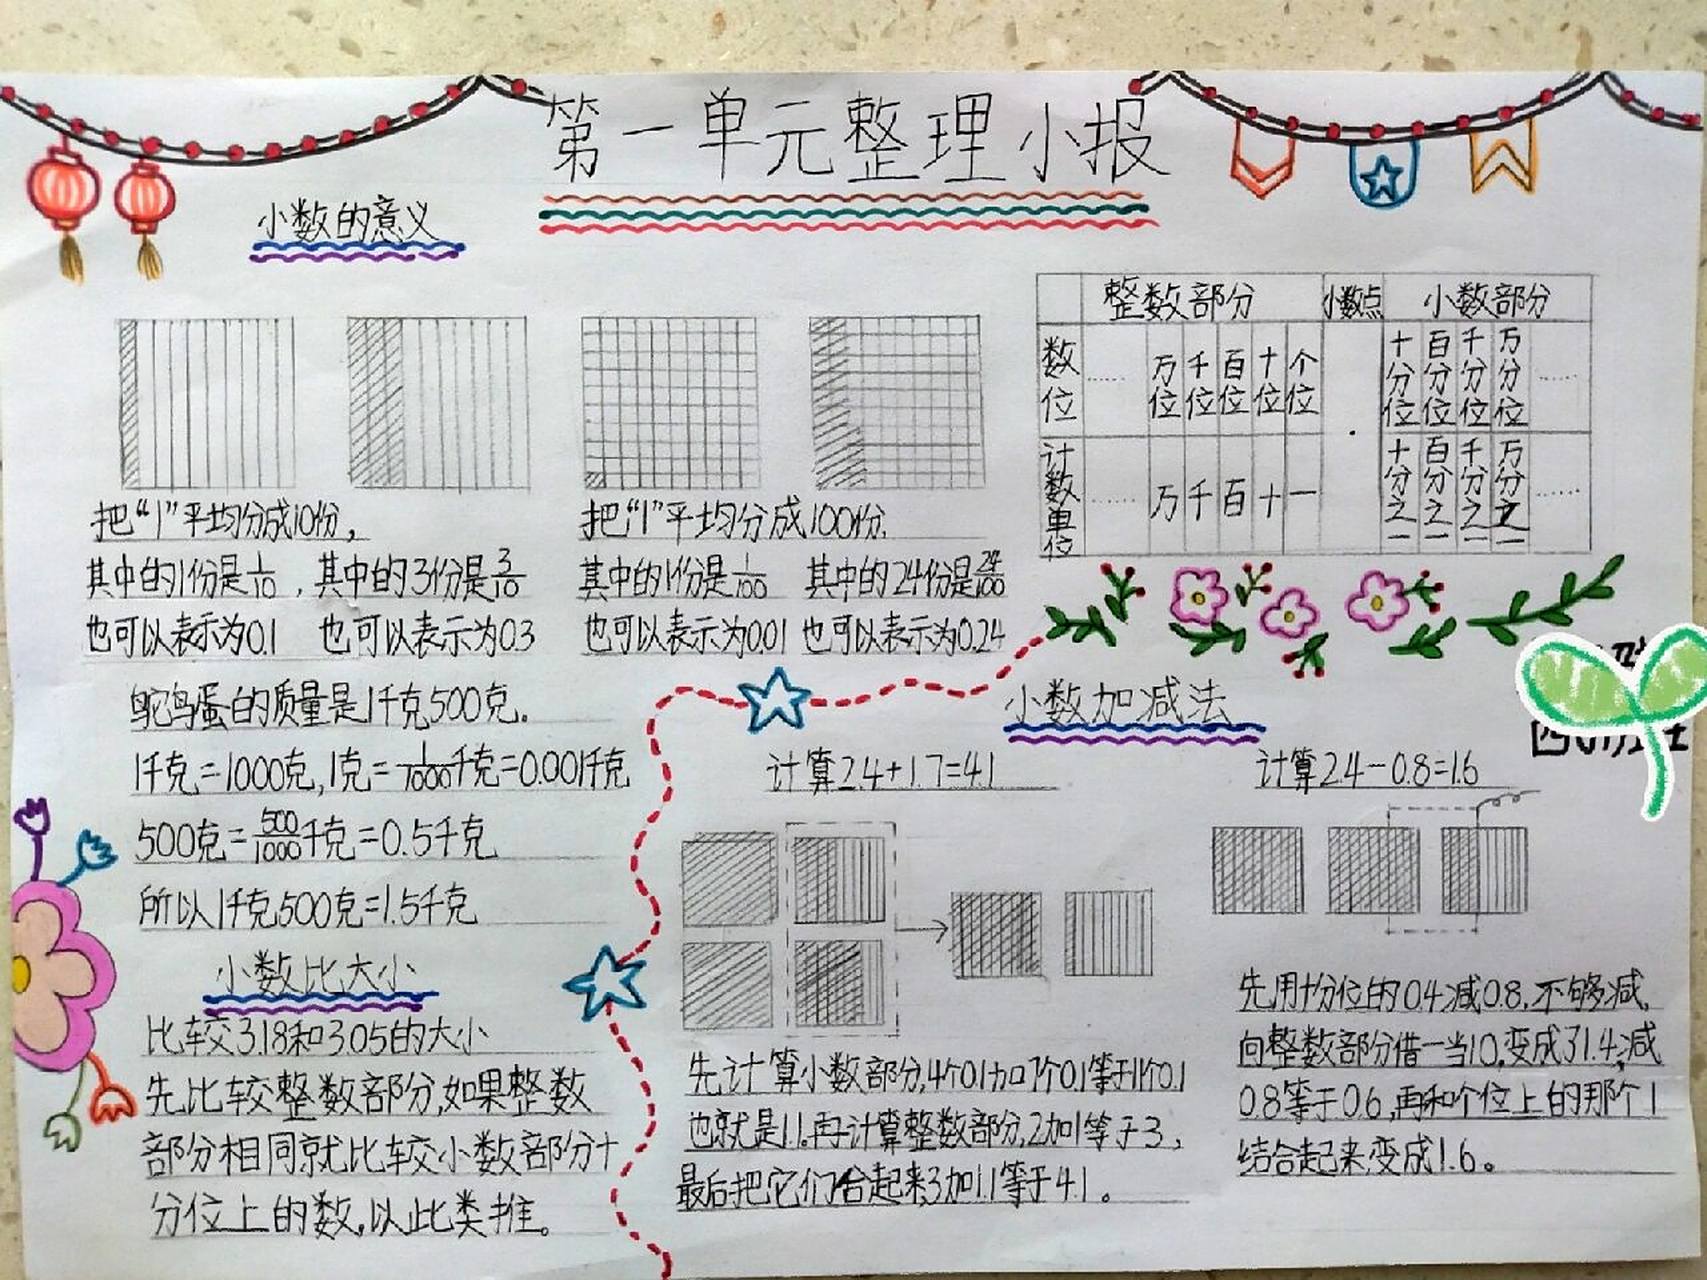 第一单元整理小报
小数的意义
把“1”平均分成10份，
其中的1份是1/10，其中的3份是3/10
也可以表示为0.1 也可以表示为0.3
把“1”平均分成100份.
其中的1份是1/100 其中的24份是24/100
也可以表示为0.01 也可以表示为0.24
鸵鸟蛋的质量是1千克500克。
1千克=1000克,1克=1/1000千克=0.001千克
500克=500/1000千克=0.5千克
所以1千克500克=1.5千克
小数比大小
比较3.18和3.05的大小
先比较整数部分,如果整数
部分相同就比较小数部分十
分位上的数,以此类推。
整数部分 小数点 小数部分
数位 …… 万位 千位 百位 十位 个位 . 十分位 百分位 千分位 万分位 ……
计数单位 …… 万 千 百 十 一 十分之一 百分之一 千分之一 万分之一 ……
小数加减法
计算2.4+1.7=4.1
先计算小数部分,4个0.1加7个0.1等于11个0.1
也就是1.1。再计算整数部分,2加1等于3，
最后把它们合起来3加1.1等于4.1。
计算2.4-0.8=1.6
先用十分位的0.4减0.8,不够减,
向整数部分借一当10,变成了1.4,减
0.8等于0.6,再和个位上的那个1
结合起来,变成1.6。